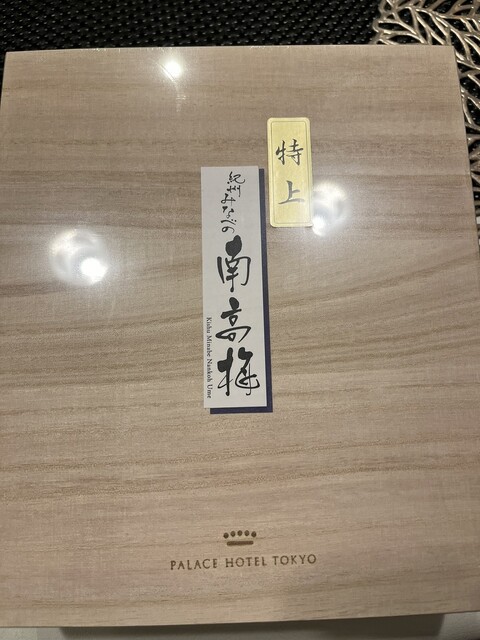 特上
紀州みなべの
南高梅
Kishu Minabe Nankoh Ume
PALACE HOTEL TOKYO